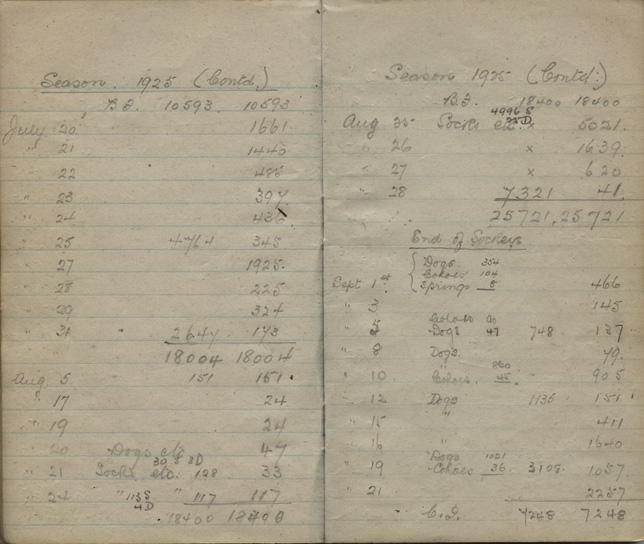 Season. 1925 (Contd.)
B.F. 10593 10593
July 20 1661
" 21 1445
" 22 485
" 23 397
" 24 436
" 25 4764 345
" 27 1925
" 28 225
" 29 324
" 31 2647 173
18004 18004
Aug. 5 151 151
" 17 24
" 19 24
" 20 Dogs etc 47
30 S 3D
" 21 Socks etc. 128 33
" 24 " 113 S " 117 117
4D
18400 18400
Season 1925 (Contd.)
B.F. 18400 18400
4996 S
Aug 25 Socks etc. 25 D x 5021
" 26 x 1639
" 27 x 620
" 28 7321 41
25721 25721
End of Sockeys
Dogs 354
Cohoes 104
Sept. 1st Springs 8 466
" 3 145
Cohoes 90
" 5 Dogs 47 748 137
" 8 Dogs 79
860
" 10 Cohoes 45 905
" 12 Dogs 1135 151
" 15 " 411
" 16 " 1640
Dogs 1021
" 19 Cohoes 36 3108 1057
" 21 2257
C.F. 7248 7248